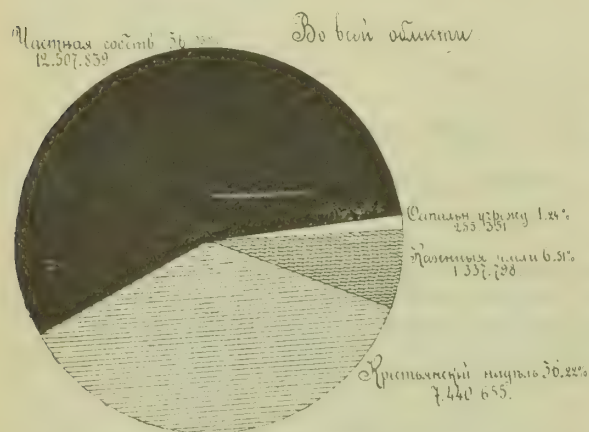 Во всей области
Частная собств
12.507.839
учрежд 1.24%
255 351
Казенныя земли 6.51%
1 337.798
Крестьянскій надѣлъ 36.22%
7.440 655.